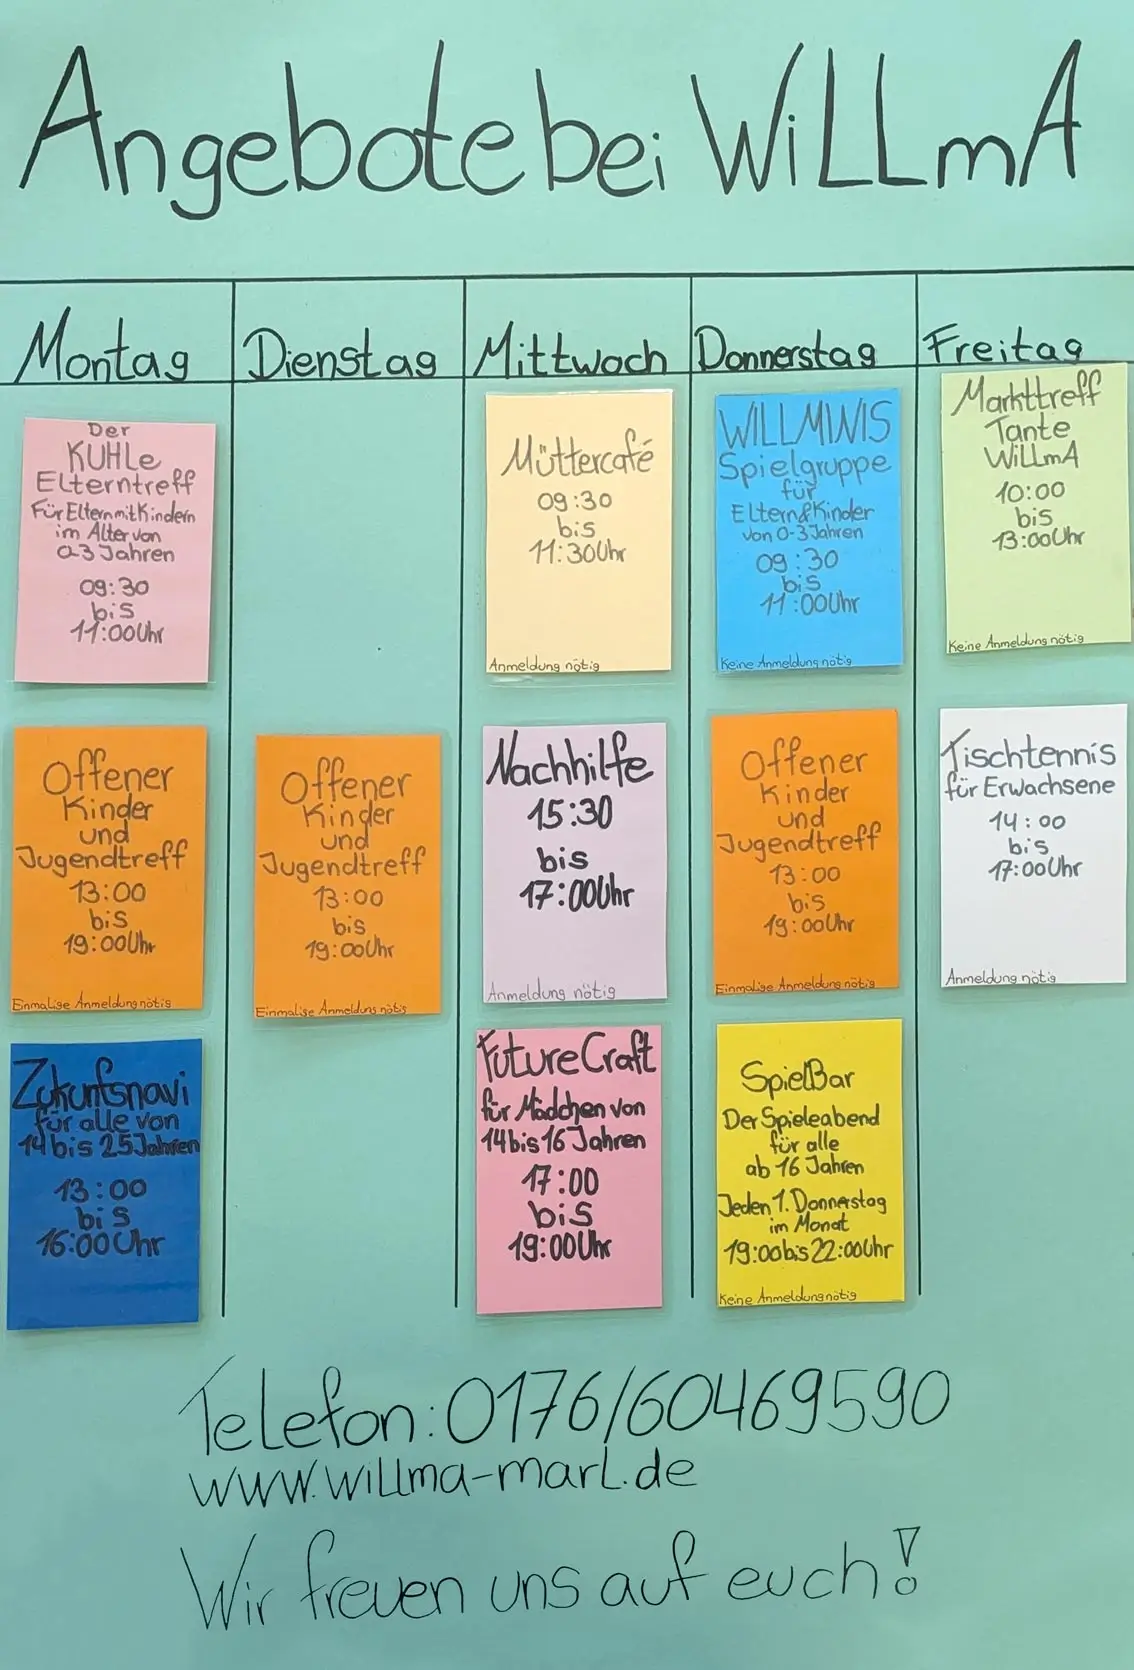 Angebote bei WiLLmA
Montag
Der
KUHLe
Elterntreff
Für Eltern mit Kindern
im Alter von
0-3 Jahren
09:30
bis
11:00Uhr
Offener
Kinder
und
Jugendtreff
13:00
bis
19:00Uhr
Einmalige Anmeldung nötig
Zukunftsnavi
für alle von
14 bis 25 Jahren
13:00
bis
16:00Uhr
Dienstag
Offener
Kinder
und
Jugendtreff
13:00
bis
19:00Uhr
Einmalige Anmeldung nötig
Mittwoch
Müttercafé
09:30
bis
11:30Uhr
Anmeldung nötig
Nachhilfe
15:30
bis
17:00Uhr
Anmeldung nötig
FutureCraft
für Mädchen von
14 bis 16 Jahren
17:00
bis
19:00Uhr
Donnerstag
WILLMINIS
Spielgruppe
für
Eltern&Kinder
von 0-3 Jahren
09:30
bis
11:00Uhr
Keine Anmeldung nötig
Offener
Kinder
und
Jugendtreff
13:00
bis
19:00Uhr
Einmalige Anmeldung nötig
SpielBar
Der Spieleabend
für alle
ab 16 Jahren
Jeden 1. Donnerstag
im Monat
19:00 bis 22:00Uhr
Keine Anmeldung nötig
Freitag
Markttreff
Tante
WiLLmA
10:00
bis
13:00Uhr
Keine Anmeldung nötig
Tischtennis
für Erwachsene
14:00
bis
17:00Uhr
Anmeldung nötig
Telefon: 0176/60469590
www.willma-marl.de
Wir freuen uns auf euch!